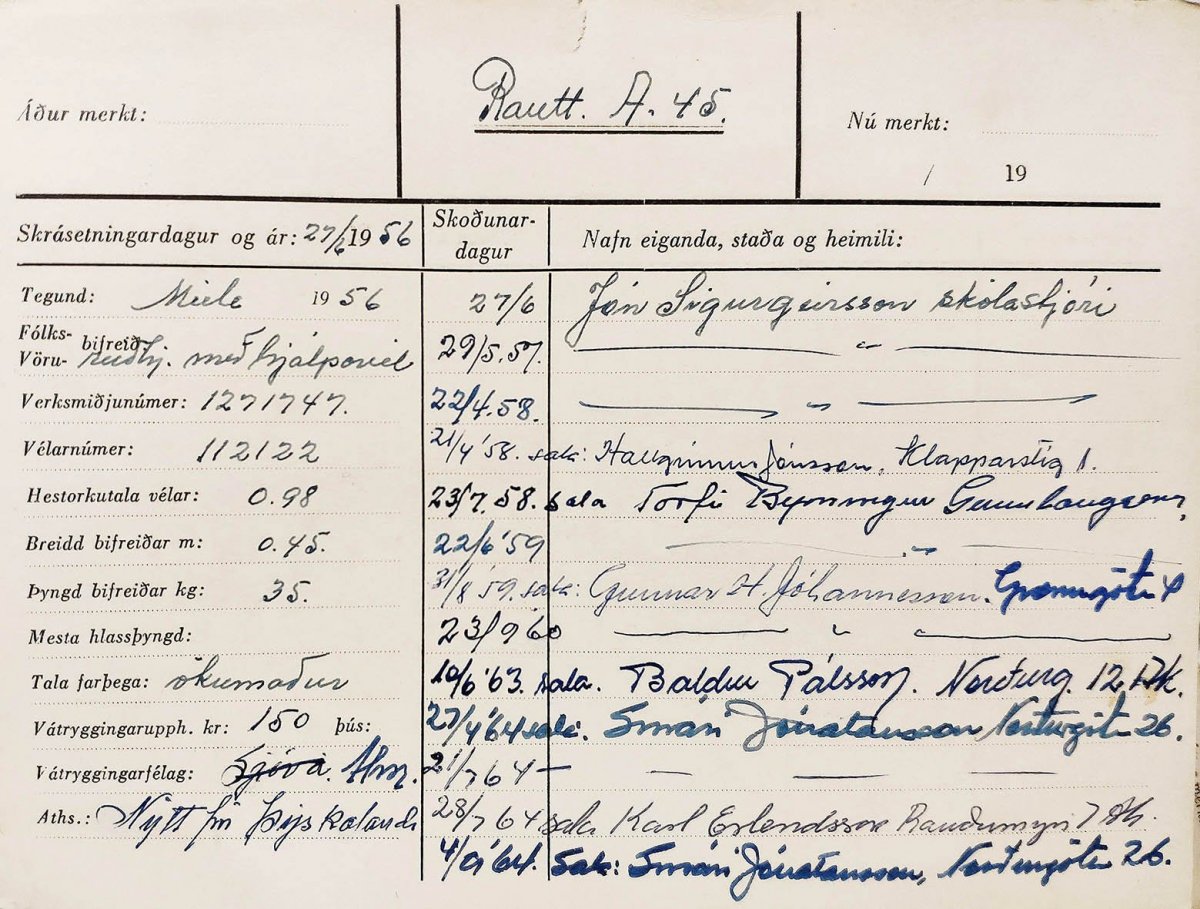 Áður merkt:
Rautt. A. 45.
Nú merkt:
/ 19
Skrásetningardagur og ár: 27/6 19 56
Skoðunar-
dagur
Nafn eiganda, staða og heimili:
Tegund: Miele 19 56
27/6 Jón Sigurgeirsson skólastjóri
Fólks-
Vöru- bifreið: reiðhj. með hjálparvél
29/5.57. — " —
Verksmiðjunúmer: 1271747.
22/4.58. — " —
Vélarnúmer: 112122
21/4 '58. sala: Hallgrímur Jónsson, Klapparstíg 1.
Hestorkutala vélar: 0.98
23/7.58. sala Torfi Gunnlaugsson,
Breidd bifreiðar m: 0.45.
22/6 '59 — " —
Þyngd bifreiðar kg: 35.
31/8 '59. sala: Gunnar H. Jóhannesson. Grænugötu 4
Mesta hlassþyngd:
23/9 60 — " —
Tala farþega: ökumaður
10/6 '63. sala. Baldur Pálsson. Norðurg. 12, Ak.
Vátryggingarupph. kr: 150 þús:
27/4 '64 sala: Smári Jónatansson Norðurgötu 26.
Vátryggingarfélag: Sjóvá. Alm.
21/7 64 — — — —
Aths.: Nýtt frá Þýskalandi
28/7 64 sala Karl Erlendsson Rauðumýri 7 Ak.
4/9 '64. Sala: Smári Jónatansson, Norðurgötu 26.